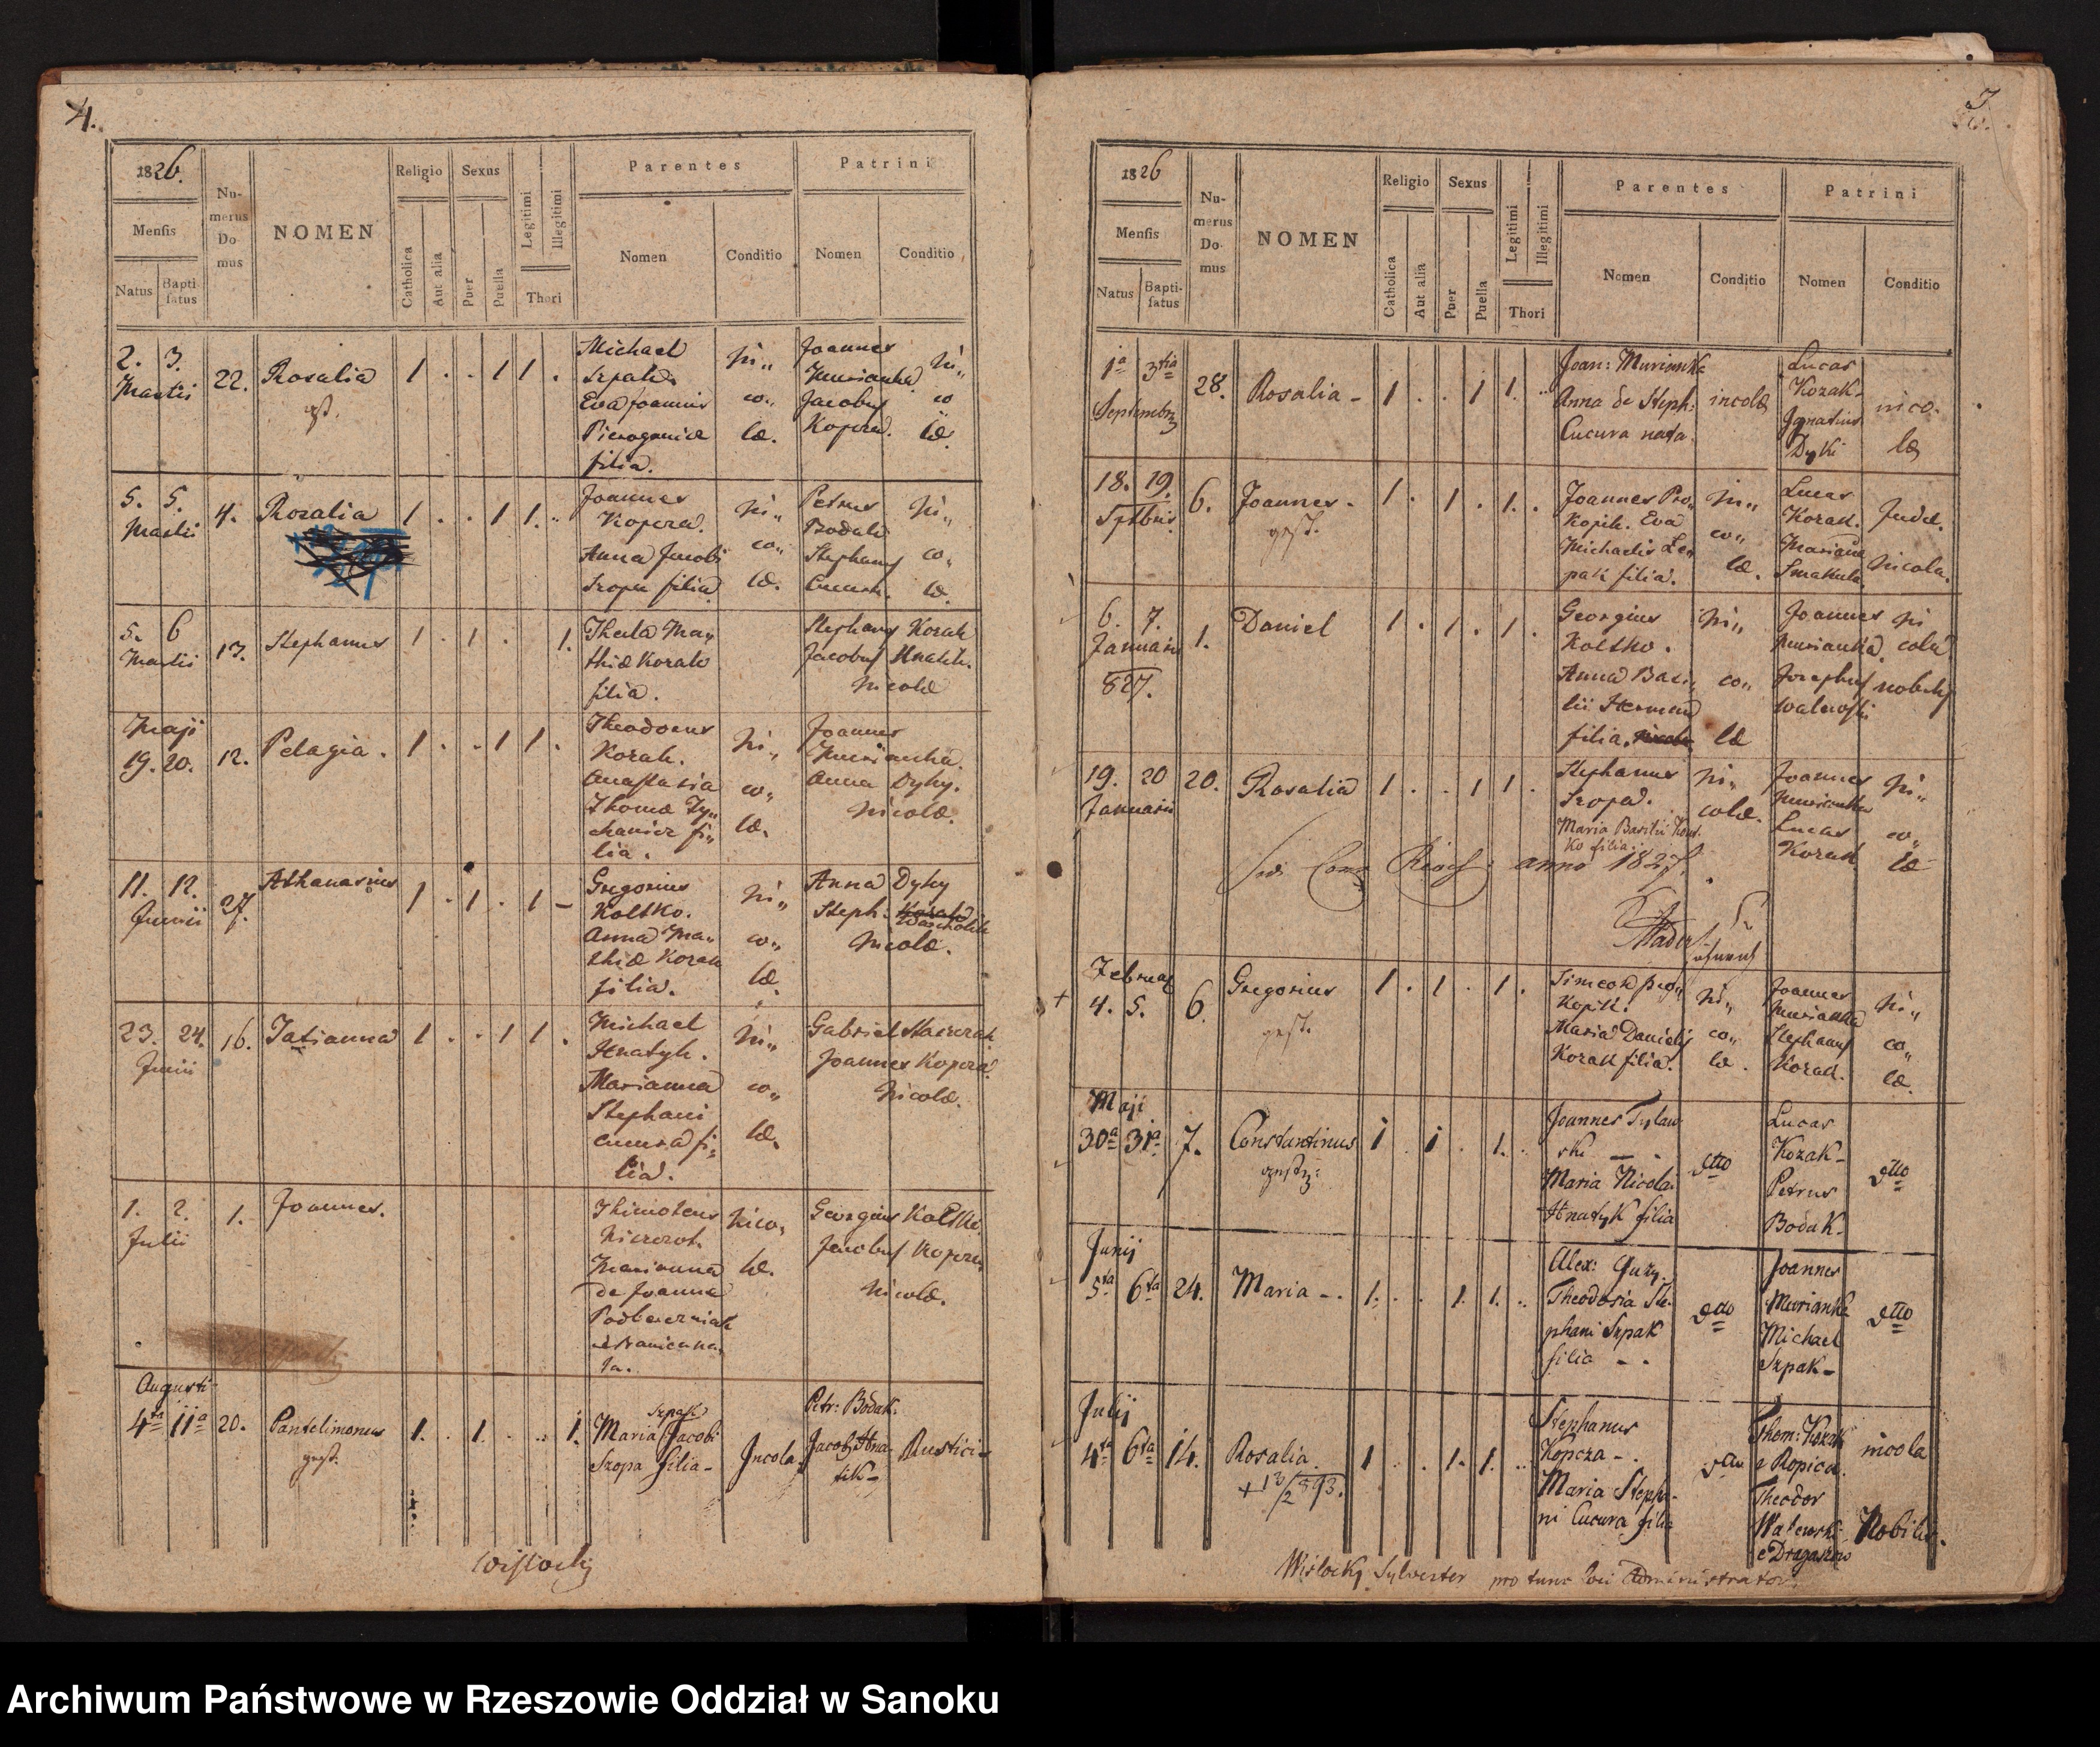 4.
1826.
Mensis
Natus
Bapti
satus
Nu-
merus
Do
mus
NOMEN
Religio
Catholica
Aut alia
Sexus
Puer
Puella
Legitimi
Illegitimi
Thori
Parentes
Nomen
Conditio
Patrini
Nomen
Conditio
2. 3.
Martii
22.
Rosalia
1 . . 1 1 .
Michael
Eva Joannis
filia.
in„
co„
læ.
Joannes
Murianka
Jacobus
Kopcza.
in„
co
læ.
5. 5.
Martii
4.
Rosalia
1 . . 1 1.
Joannes
Kopcza.
Anna Jacobi
Szopa filia
in„
co„
læ.
Petrus
Bodak
Stephanus
in„
co„
læ.
5. 6
Martii
13.
Stephanus
1 . 1 . 1.
Thecla Ma„
thiæ Kozak
filia.
Stephanus Kozak
Jacobus Hnatik.
incolæ
Maji
19. 20.
12.
Pelagia.
1 . . 1 1 .
Theodorus
Kozak.
Anastasia
Thomæ Ty„
fi„
lia.
in„
co„
læ.
Joannes
Murianka.
Anna Dyky.
incolæ.
11. 12.
Junii
27.
Athanasius
1 . 1 . 1 –
Gregorius
Koltko.
Anna Ma„
thiæ Kozak
filia.
in„
co„
læ.
Anna Dyky
Steph.
incolæ.
23. 24.
Junii
16.
Tatianna
1 . . 1 1 .
Michael
Hnatyk.
Marianna
Stephani
Cucura fi„
lia.
in„
co„
læ.
Gabriel
Joannes Kopcza.
incolæ.
1. 2.
Julii
1.
Joannes.
Thimoteus
Marianna
de Joanna
na„
ta.
inco„
læ.
Georgius Koltko.
Jacobus Kopcza
incolæ.
Augusti
4ta 11a
20.
Pantelimonus
gest.
1. . 1. . .. 1.
Szpak
Maria Jacobi
Szopa filia –
Incola
Petr: Bodak.
Jacob Hna-
tik –
Rustici –
Wisłocky
1826
Mensis
Natus
Bapti-
satus
Nu-
merus
Do-
mus
NOMEN
Religio
Catholica
Aut alia
Sexus
Puer
Puella
Legitimi
Illegitimi
Thori
Parentes
Nomen
Conditio
Patrini
Nomen
Conditio
1a 3tia
Septembr
28.
Rosalia –
1 . . 1 1. ..
Joan: Murianka
Anna de Steph:
Cucura nata.
incolæ
Lucas
Kozak –
Ignatius
Dyki
inco-
læ
18. 19.
Septbris
6.
Joannes -
gest.
1 . 1 . 1. .
Joannes Pro„
Kopik. Eva
Michaelis Le„
pak filia.
in„
co„
læ.
Lucas
Kozak.
Marianna
Smakula
Judex.
incola.
6. 7.
Januarii
827.
1.
Daniel
1 . 1 . 1 .
Georgius
Koltko.
Anna Basi„
lii
filia.
in„
co„
læ
Joannes
Murianka
Josephus
Walewski
in
cola
nobilis
19. 20
Januarii
20.
Rosalia
1 . . 1 1 .
Stephanus
Szopa.
Maria Basilii
Ko filia.
in„
colæ.
Joannes
Murianka
Lucas
Kozak
in„
co„
læ
anno 1827.
Februar
4. 5.
6.
Gregorius
gest.
1 . 1 . 1 .
Simeon Pro„
Kopik.
Maria Danielis
Kozak filia.
in„
co„
læ.
Joannes
Murianka
Stephanus
Kozak.
in„
co„
læ.
Maji
30a 31a
7.
Constantinus
1 . 1 . 1. .
Joannes Tylaw
ski –
Maria Nicolai
Hnatyk filia
dtto
Lucas
Kozak –
Petrus
Bodak –
dtto
Junij
5ta 6ta
24.
Maria – .
1. . . 1. 1. ..
Alex: Guzy.
Theodosia Ste-
phani Szpak
filia – .
dtto
Joannes
Murianka
Michael
Szpak –
dtto
Julij
4ta 6ta
14.
Rosalia.
+ 13/2 893.
1 . . 1. 1. ..
Stephanus
Kopcza – .
Maria Stepha-
ni Cucura filia
Thom: Kozak
e Ropica.
Theodor
Walewski
incola
Nobilis.
Wisłocky Sylvester pro tunc loci Administrator.
Archiwum Państwowe w Rzeszowie Oddział w Sanoku